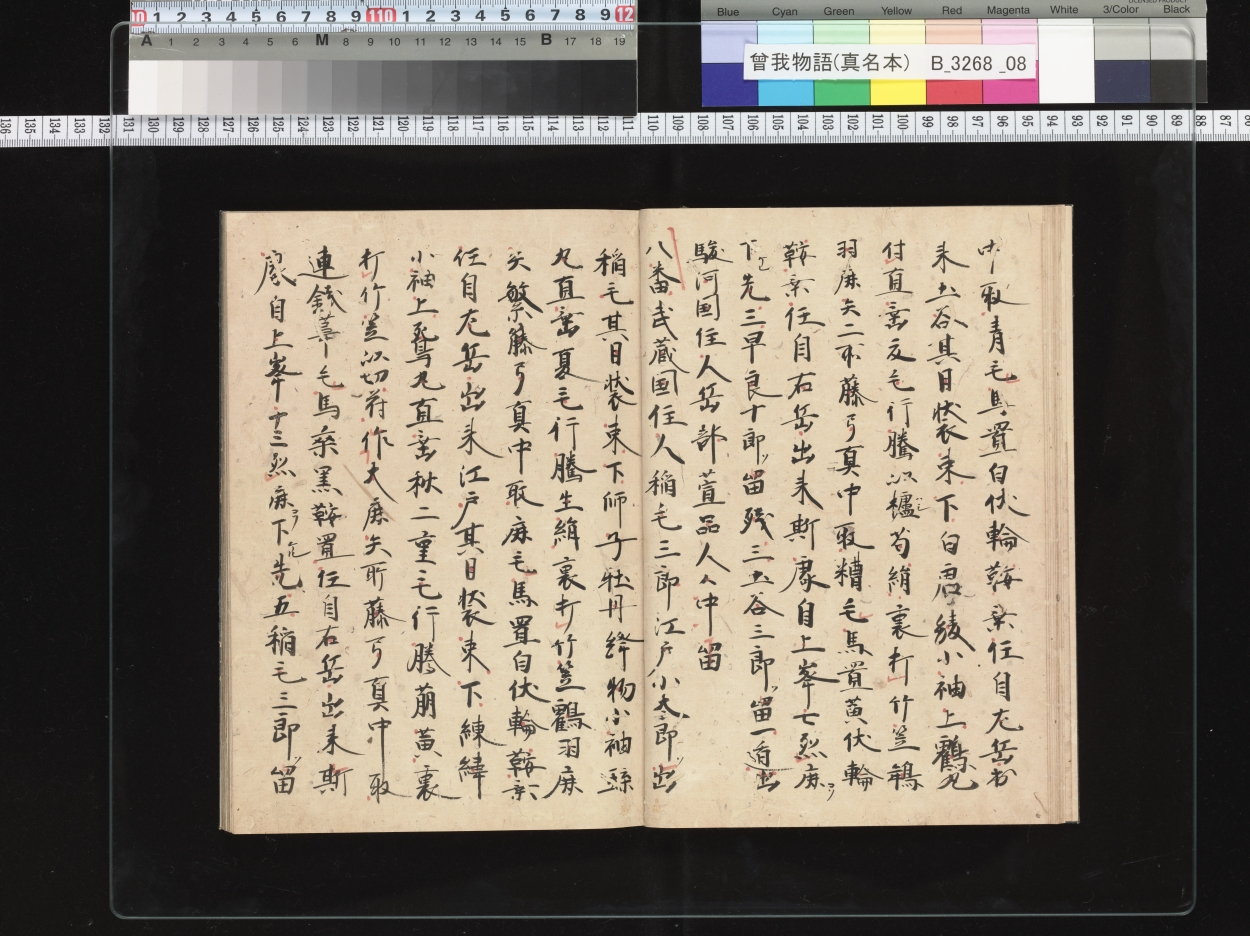 Blue Cyan Green Yellow Red Magenta White 3/Color Black
曾我物語(真名本) B_3268_08
中取青毛馬置白伏輪鞍乗任自左岳出
来土谷其日装束下白唐綾小袖上鶴丸
付直垂夏毛行騰以櫨匂絹裏打竹笠鵠
羽鹿矢二所藤弓真中取糟毛馬置黄伏輪
鞍乗任自右岳出来斯康自上峯七烈麻
下先三早良十郎留残三土谷三郎留一道出
駿河国住人岳部萱品人々中留
八番武蔵国住人稲毛三郎江戸小太郎出
稲毛其日装束下師子牡丹絳物小袖
丸直垂夏毛行騰生絹裏打竹笠鶴羽麻
矢繁藤弓真中取麻毛馬置白伏輪鞍乗
任自左岳出来江戸其日装束下練緯
小袖上鴛丸直垂秋二重毛行騰萠黄裏
打竹笠以切符作大鹿矢所藤弓真中取
連銭葦毛馬乗黒鞍置任自右岳出来斯
自上峯十三烈麻下先五稲毛三郎留